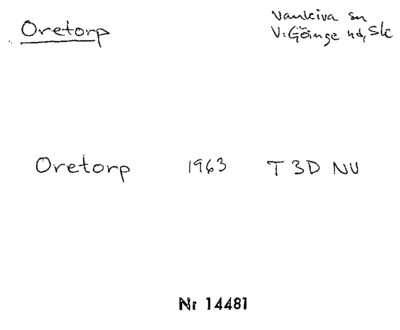 Oretorp
Vankiva sn
V. Göinge hd, Sk
Oretorp 1963 T 3D NV
Nr 14481